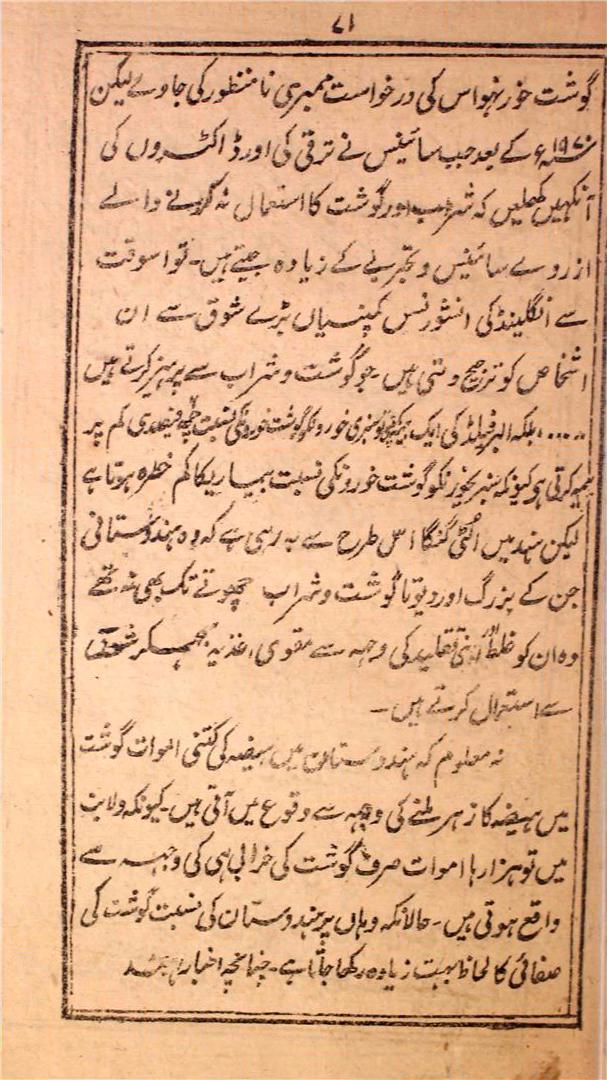 ۷۱
گوشت خور نہو اس کی درخواست ممبری نا منظور کی جاوے لیکن
کے بعد جب سائینس نے ترقی کی اور ڈاکٹروں کی
آنکھیں کھلیں کہ شراب اور گوشت کا استعمال نہ کرنے والے
از روے سائینس و تجربے کے زیادہ جیتے ہیں۔ تو اسوقت
سے انگلینڈ کی انشورنس کمپنیاں بڑے شوق سے ان
اشخاص کو ترجیح دیتی ہیں۔ جو گوشت و شراب سے پرہیز کرتے ہیں
..... بلکہ کی ایک کمپنی تو سبزی خورونکو گوشت خورونکی نسبت فیصدی کم پر
بیمہ کرتی ہو کیونکہ سبزیخورنکو گوشت خورونکی نسبت بیماریکا کم خطرہ ہوتا ہے
لیکن ہند میں الٹی گنگا اس طرح سے بہ رہی ہے کہ وہ ہندوستانی
جن کے بزرگ اور دیوتا گوشت و شراب چھوتے تک بھی نہ تھے
وہ ان کو غلط تقلید کی وجہ سے مقوی اغذیہ سمجھکر شوق
سے استعمال کرتے ہیں۔
نہ معلوم کہ ہندوستان میں ہیضہ کی کتنی اموات گوشت
میں ہیضہ کا زہر ملنے کی وجہ سے وقوع میں آتی ہیں۔ کیونکہ ولایت
میں تو ہزارہا اموات صرف گوشت کی خرابی ہی کی وجہ سے
واقع ہوتی ہیں۔ حالانکہ وہاں پر ہندوستان کی نسبت گوشت کی
صفائی کا لحاظ بہت زیادہ رکھا جاتا ہے۔ چنانچہ اخبار